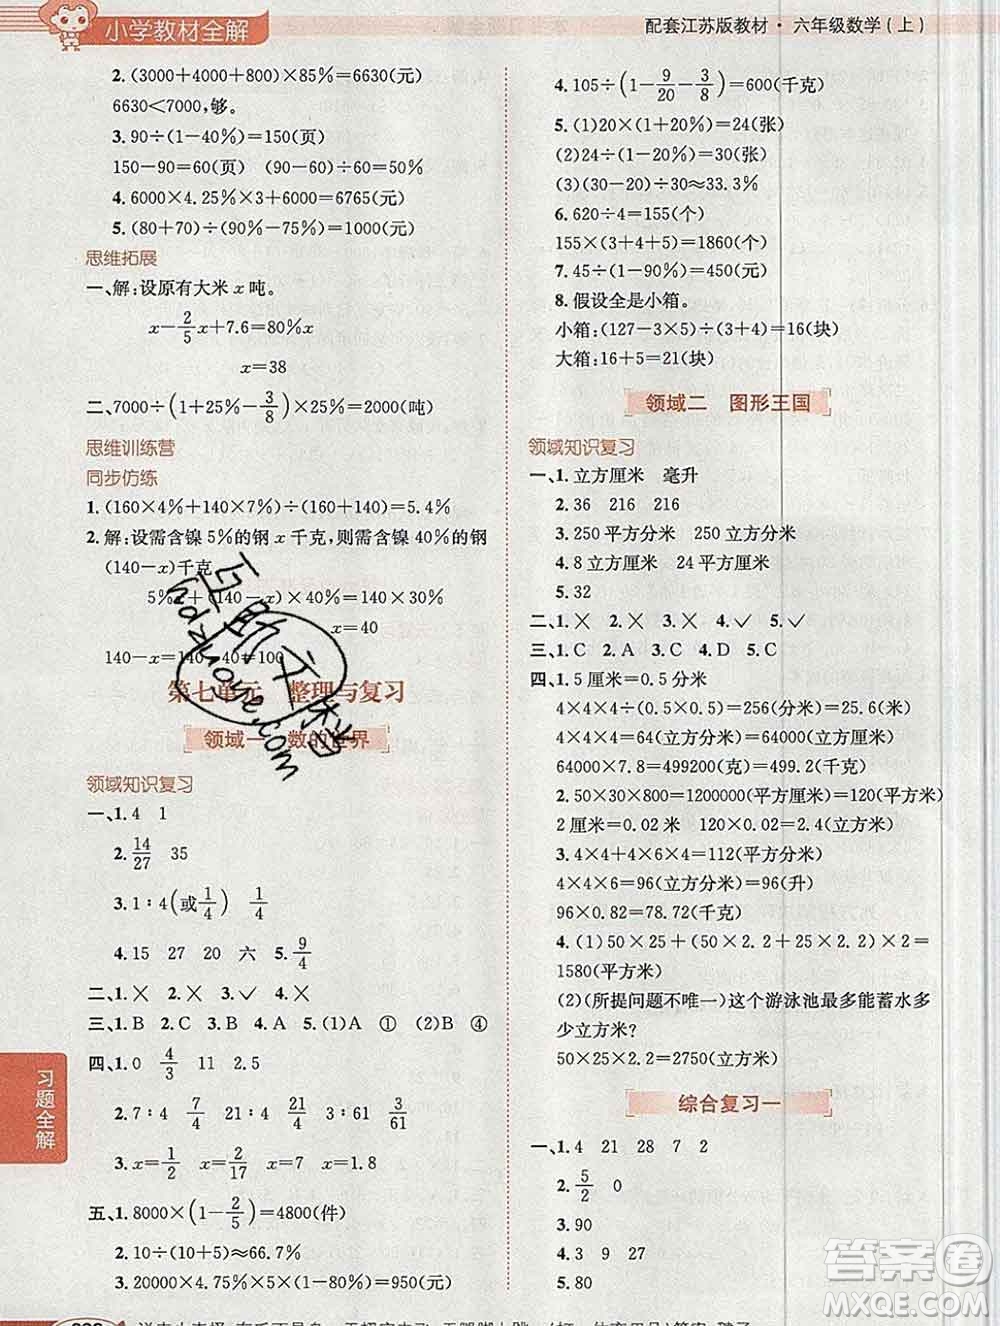 小学教材全解
配套江苏版教材·六年级数学(上)
2. (3000+4000+800)×85%=6630(元)
6630<7000,够。
3. 90÷(1-40%)=150(页)
150-90=60(页) (90-60)÷60=50%
4. 6000×4.25%×3+6000=6765(元)
5. (80+70)÷(90%-75%)=1000(元)
思维拓展
一、解:设原有大米 x 吨。
x-2/5x+7.6=80%x
x=38
二、7000÷(1+25%-3/8)×25%=2000(吨)
思维训练营
同步仿练
1. (160×4%+140×7%)÷(160+140)=5.4%
2. 解:设需含镍 5%的钢 x 千克,则需含镍 40%的钢
(140-x)千克
5%x+(140-x)×40%=140×30%
x=40
140-x=140-40=100
第七单元 整理与复习
领域一 数的世界
领域知识复习
一、1. 4 1
2. 14/27 35
3. 1∶4(或1/4) 1/4
4. 15 27 20 六 5. 9/4
二、1.× 2.× 3.✓ 4.× 5.×
三、1. B 2. C 3. B 4. A 5. (1)A ① (2)B ④
四、1. 0 4/3 11 2.5
2. 7∶4 7/4 21∶4 21/4 3∶61 3/61
3. x=1/2 x=2/17 x=7 x=1.8
五、1. 8000×(1-2/5)=4800(件)
2. 10÷(10+5)≈66.7%
3. 20000×4.75%=950(元)
4. 105÷(1-9/20-3/8)=600(千克)
5. (1)20×(1+20%)=24(张)
(2)24÷(1-20%)=30(张)
(3)(30-20)÷30≈33.3%
6. 620÷4=155(个)
155×(3+4+5)=1860(个)
7. 45÷(1-90%)=450(元)
8. 假设全是小箱。
小箱:(127-3×5)÷(3+4)=16(块)
大箱:16+5=21(块)
领域二 图形王国
领域知识复习
一、1. 立方厘米 毫升
2. 36 216 216
3. 250 平方分米 250 立方分米
4. 8 立方厘米 24 平方厘米
5. 32
二、1.× 2.× 3.× 4.✓ 5.✓
三、1. C 2. A 3. C 4. D 5. C
四、1. 5 厘米=0.5 分米
4×4×4÷(0.5×0.5)=256(分米)=25.6(米)
40×40×40=64000(立方厘米)
64000×7.8=499200(克)=499.2(千克)
2. 50×30×800=1200000(平方厘米)=120(平方米)
2 厘米=0.02 米 120×0.02=2.4(立方米)
3. 4×4+4×6×4=112(平方分米)
4×4×6=96(立方分米)=96(升)
96×0.82=78.72(千克)
4. (1)50×25+(50×2.2+25×2.2)×2=
1580(平方米)
(2)(所提问题不唯一)这个游泳池最多能蓄水多
少立方米?
50×25×2.2=2750(立方米)
综合复习一
一、1. 4 21 28 7 2
2. 5/2 0
3. 90
4. 3 9 27
5. 80
习题全解
互助文档
hdzuoye.com
答案圈
MXQE.COM